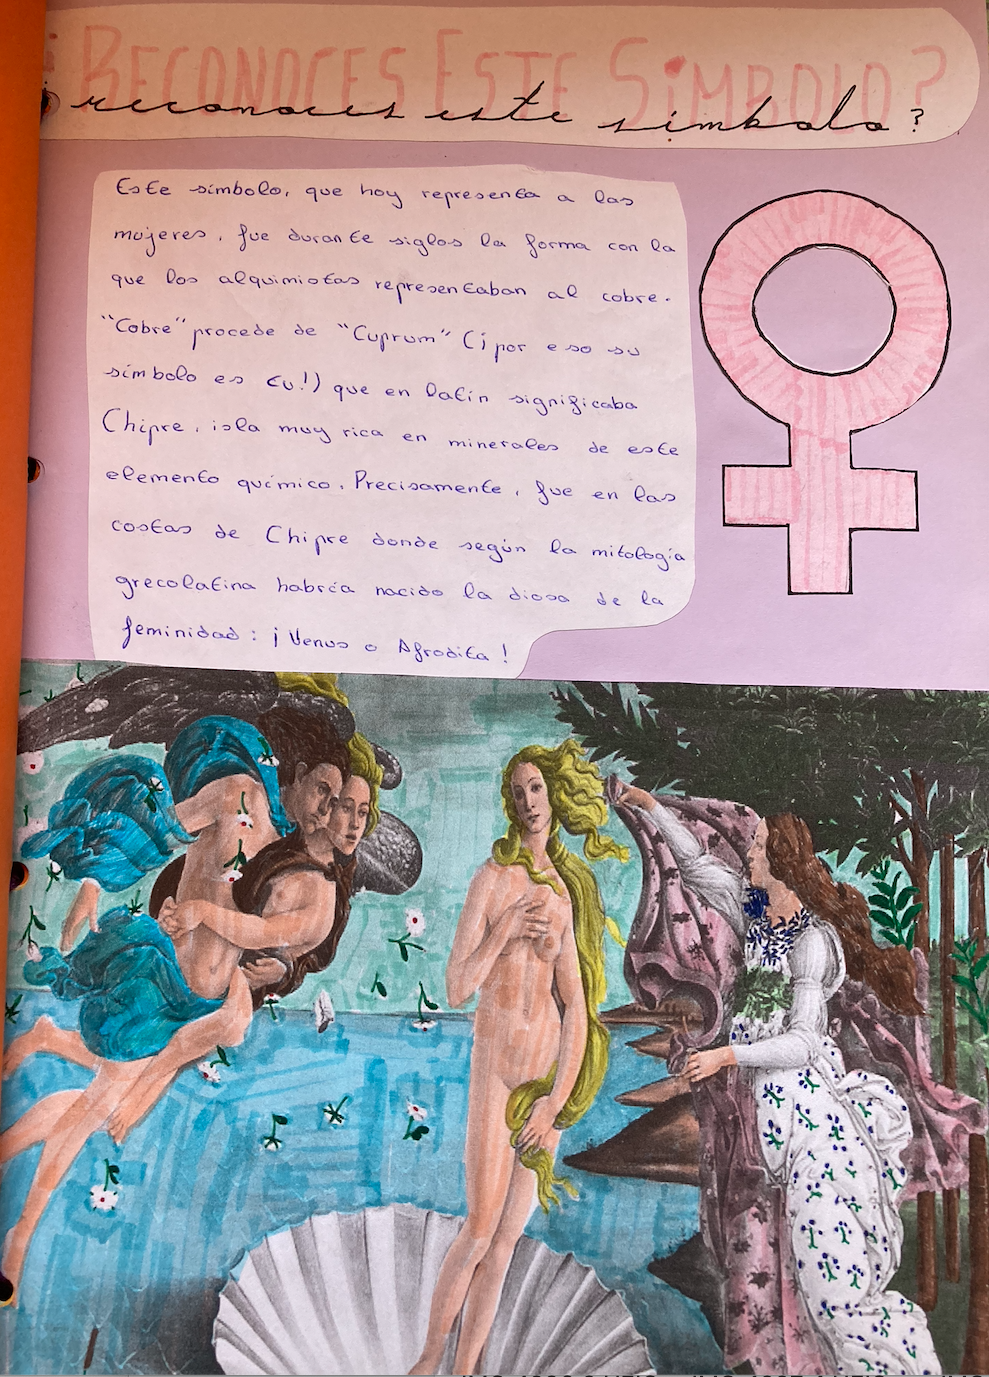 ¿RECONOCES ESTE SÍMBOLO?
reconoces este símbolo?
Este símbolo, que hoy representa a las
mujeres, fue durante siglos la forma con la
que los alquimistas representaban al cobre.
"Cobre" procede de "Cuprum" (¡por eso su
símbolo es Cu!) que en latín significaba
Chipre, isla muy rica en minerales de este
elemento químico. Precisamente, fue en las
costas de Chipre donde según la mitología
grecolatina habría nacido la diosa de la
feminidad: ¡Venus o Afrodita!